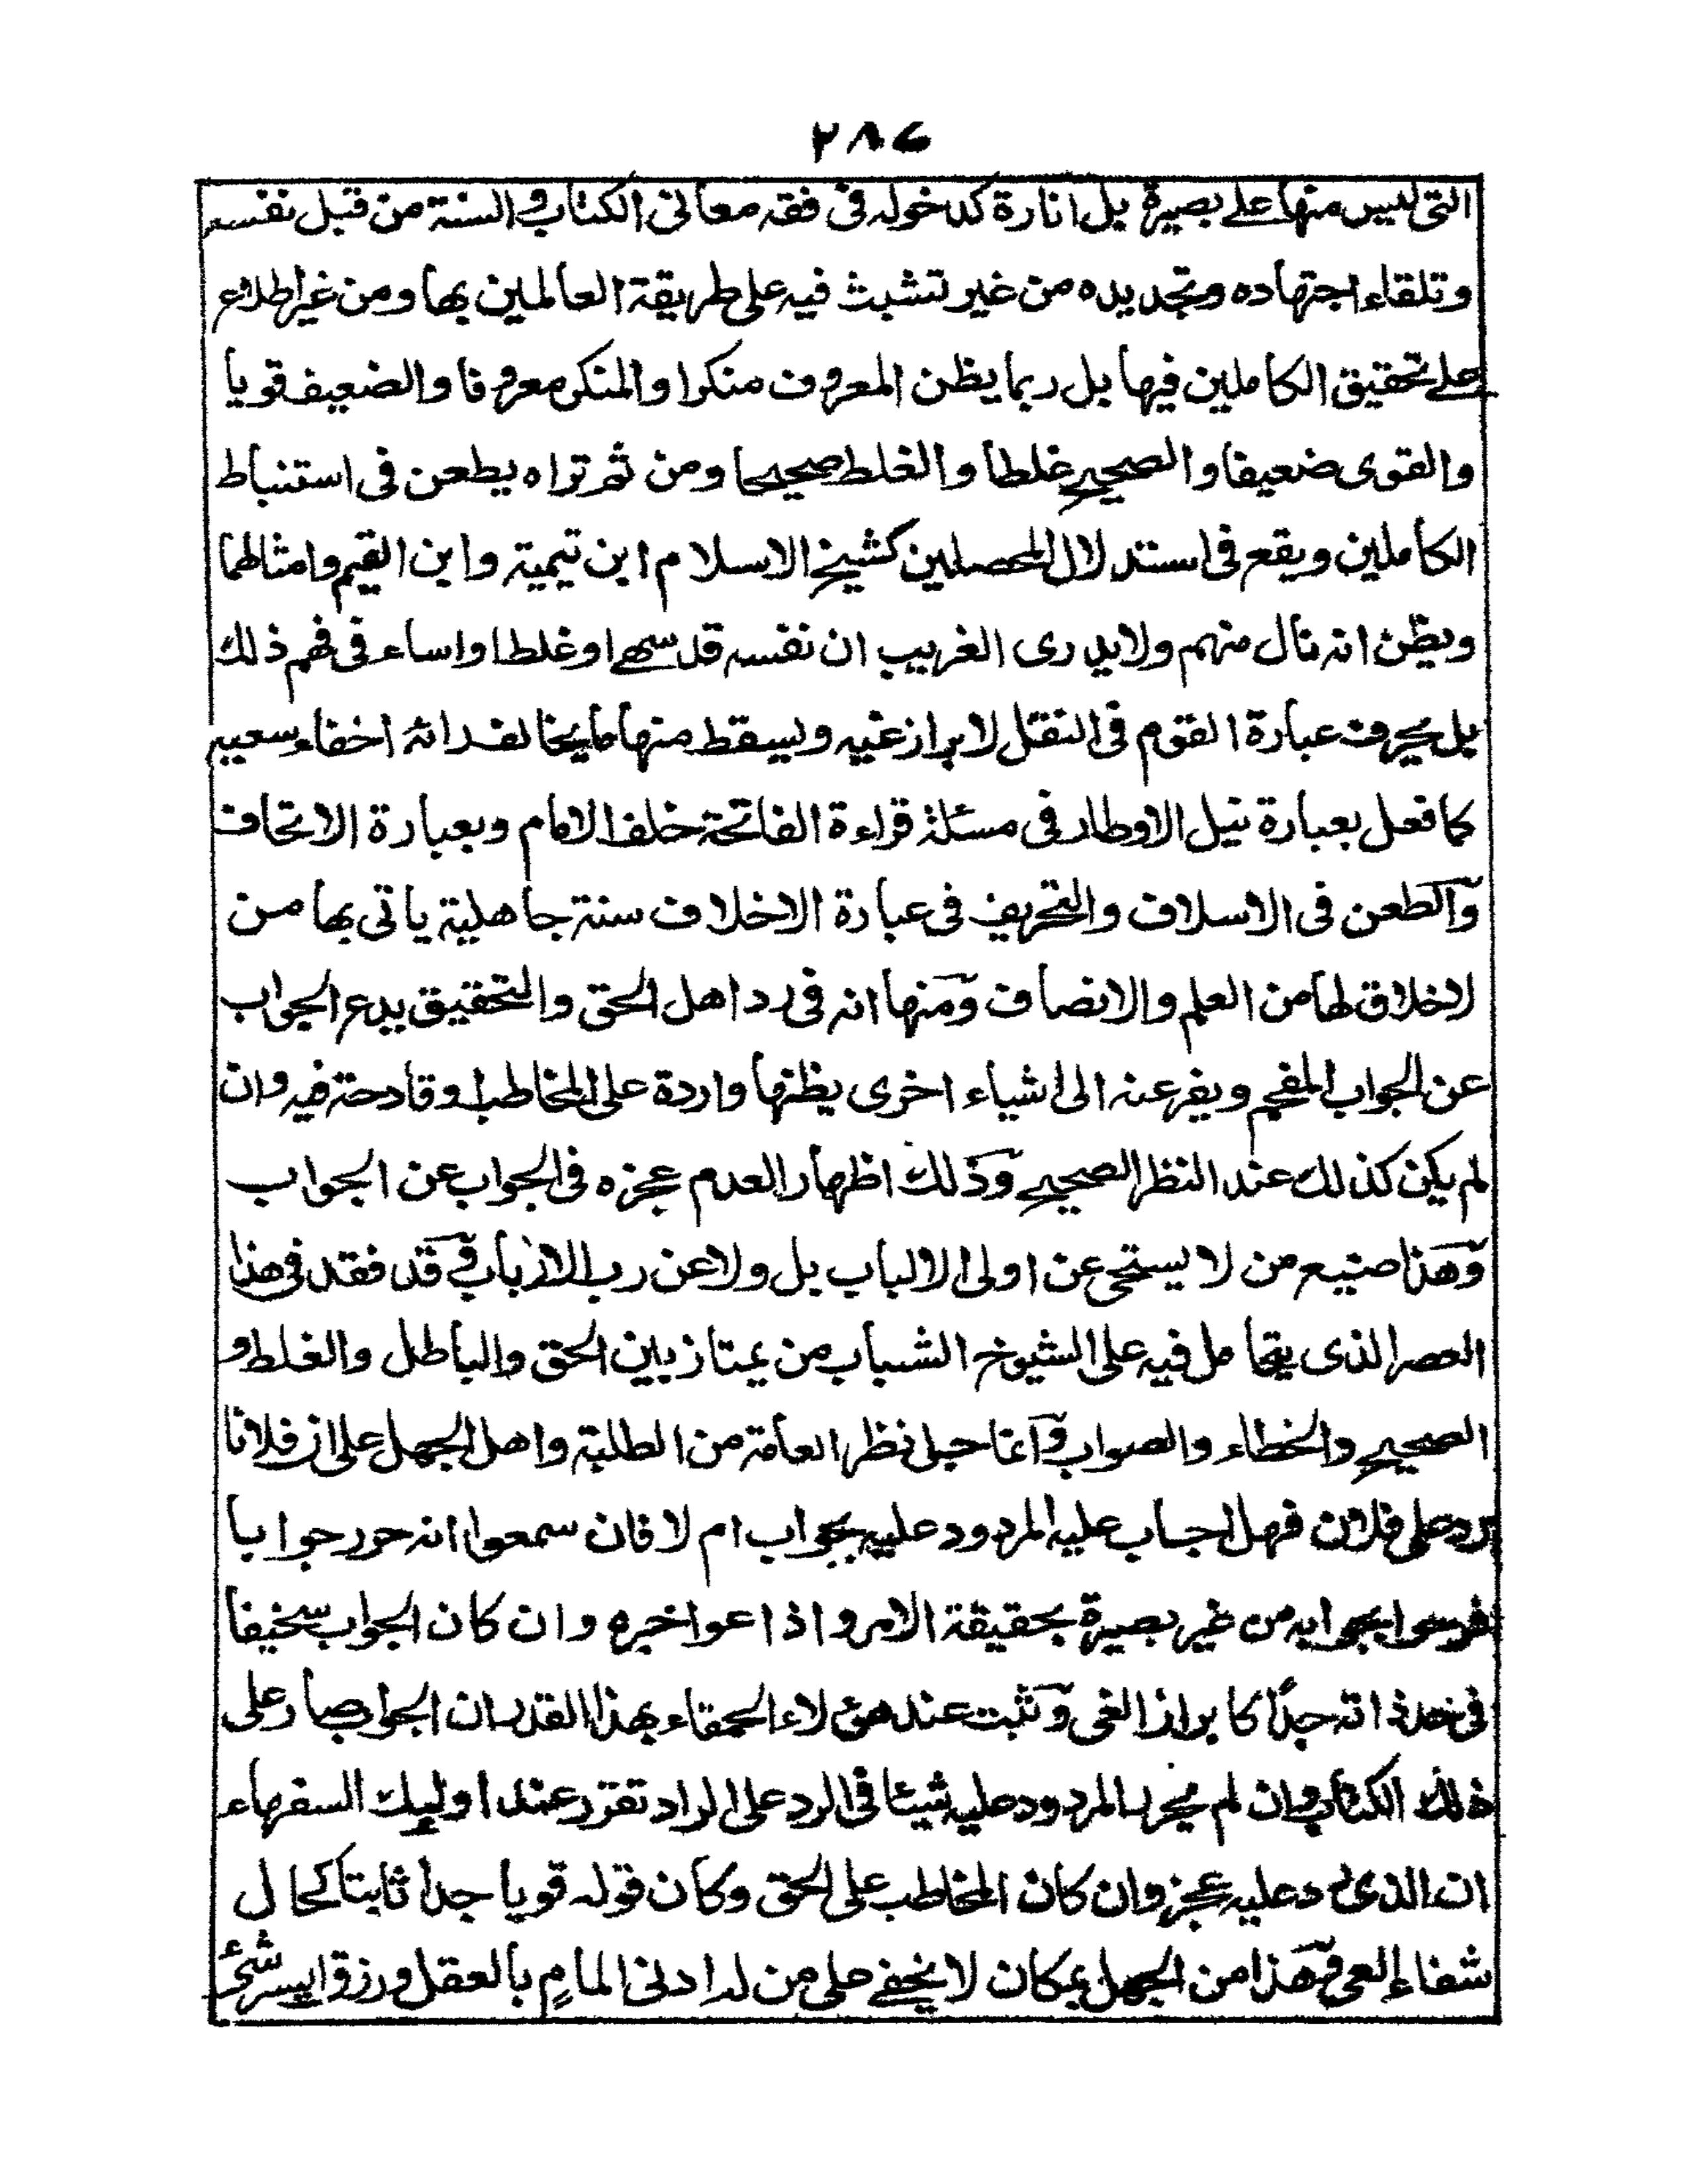 ٢٨٦
التى ليس منها على بصيرة بل انارة كدخوله فى فقه معانى الكتاب والسنة من قبل نفسه
وتلقاء اجتهاده وتجديده من غير تشبث فيه على طريقة العالمين بها ومن غير اطلاع
على تحقيق الكاملين فيها بل ربما يظن المعروف منكرا والمنكر معروفا والضعيف قويا
والقوى ضعيفا والصحيح غلطا والغلط صحيحا ومن ثم تراه يطعن فى استنباط
الكاملين ويقع فى استدلال المحصلين كشيخ الاسلام ابن تيمية وابن القيم وامثالهما
ويظن انه نال منهم ولا يدرى الغريب ان نفسه قد سها وغلط واساء فى فهم ذلك
بل يحرف عبارة القوم فى النقل لابراز غيه ويسقط منها ما يخالفه ارائه اخفاء سعيه
كما فعل بعبارة نيل الاوطار فى مسئلة قراءة الفاتحة خلف الامام وبعبارة الاتحاف
والطعن فى الاسلاف والتحريف فى عبارة الاخلاف سنة جاهلية ياتى بها من
لاخلاق لها من العلم والانصاف ومنها انه فى رد اهل الحق والتحقيق يدع الجواب
عن الجواب المفحم ويفر عنه الى اشياء اخرى يظنها واردة على المخاطب وقادحة فيه وان
لم يكن كذلك عند النظر الصحيح وذلك اظهار العدم عجزه فى الجواب عن الجواب
وهذا صنيع من لا يستحى عن اولى الالباب بل ولا عن رب الارباب وقد فقد فى هذا
العصر الذى يتحامل فيه على الشيوخ الشباب من يمتاز بين الحق والباطل والغلط و
الصحيح والخطاء والصواب وانما حبل نظر العامة من الطلبة واهل الجهل على ان فلانا
يرد على فلان فهل اجاب عليه المردود عليه بجواب ام لا فان سمعوا انه حرر جوابا
فرحوا بجوابه من غير بصيرة بحقيقة الامر واذا عوا خبره وان كان الجواب سخيفا
فى حد ذاته جدا كا براز الغى وثبت عند هؤلاء الحمقاء بهذا القدر ان الجواب صار على
ذلك الكتاب وان لم يحرر المردود عليه شيئا فى الرد على الراد تقرر عند اوليك السفهاء
ان الذى رد عليه عجز وان كان المخاطب على الحق وكان قوله قويا جدا ثابتا كحال
شفاء العى وهذا من الجهل بمكان لا يخفى على من له ادنى المام بالعقل ورزق ايسر شئ